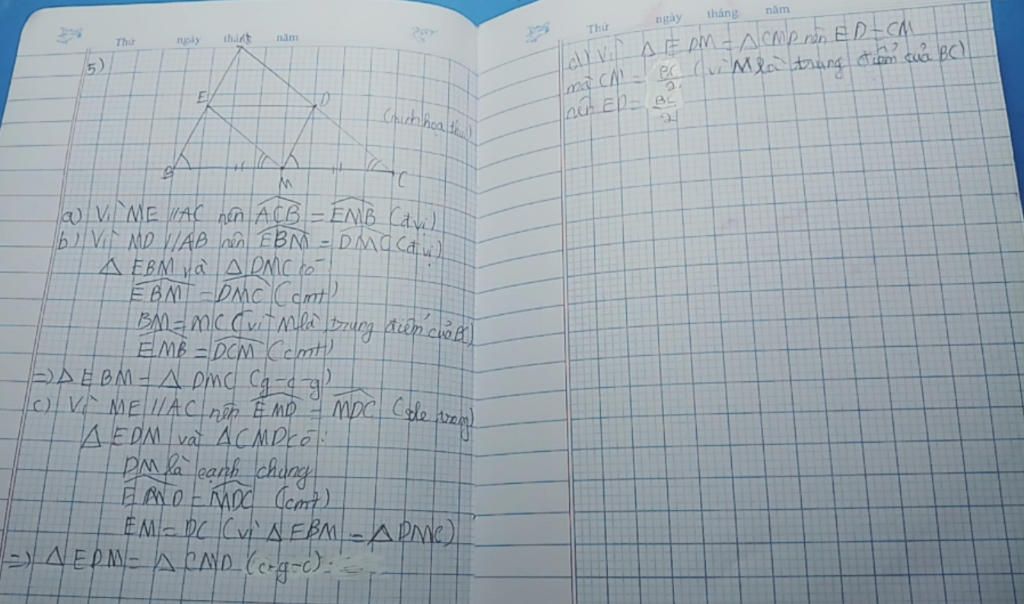 Thứ ngày tháng năm
5)
E D
(hình họa
B M C
a) Vì ME // AC nên ACB = EMB (đ.vị)
b) Vì MD // AB nên EBM = DMC (đ.vị)
Δ EBM và Δ DMC có
EBM = DMC (cmt)
BM = MC (vì M là trung điểm của BC)
EMB = DCM (cmt)
=> Δ EBM = Δ DMC (g-c-g)
c) Vì ME // AC nên EMD = MDC (sle trong)
Δ EDM và ΔCMD có:
DM là cạnh chung
EMD = MDC (cmt)
EM = DC (vì Δ EBM = Δ DMC)
=> Δ EDM = Δ CMD (c-g-c)
Thứ ngày tháng năm
d) Vì Δ EDM = ΔCMD nên ED = CM
mà CM = BC/2 (vì M là trung điểm của BC)
nên ED = BC/2